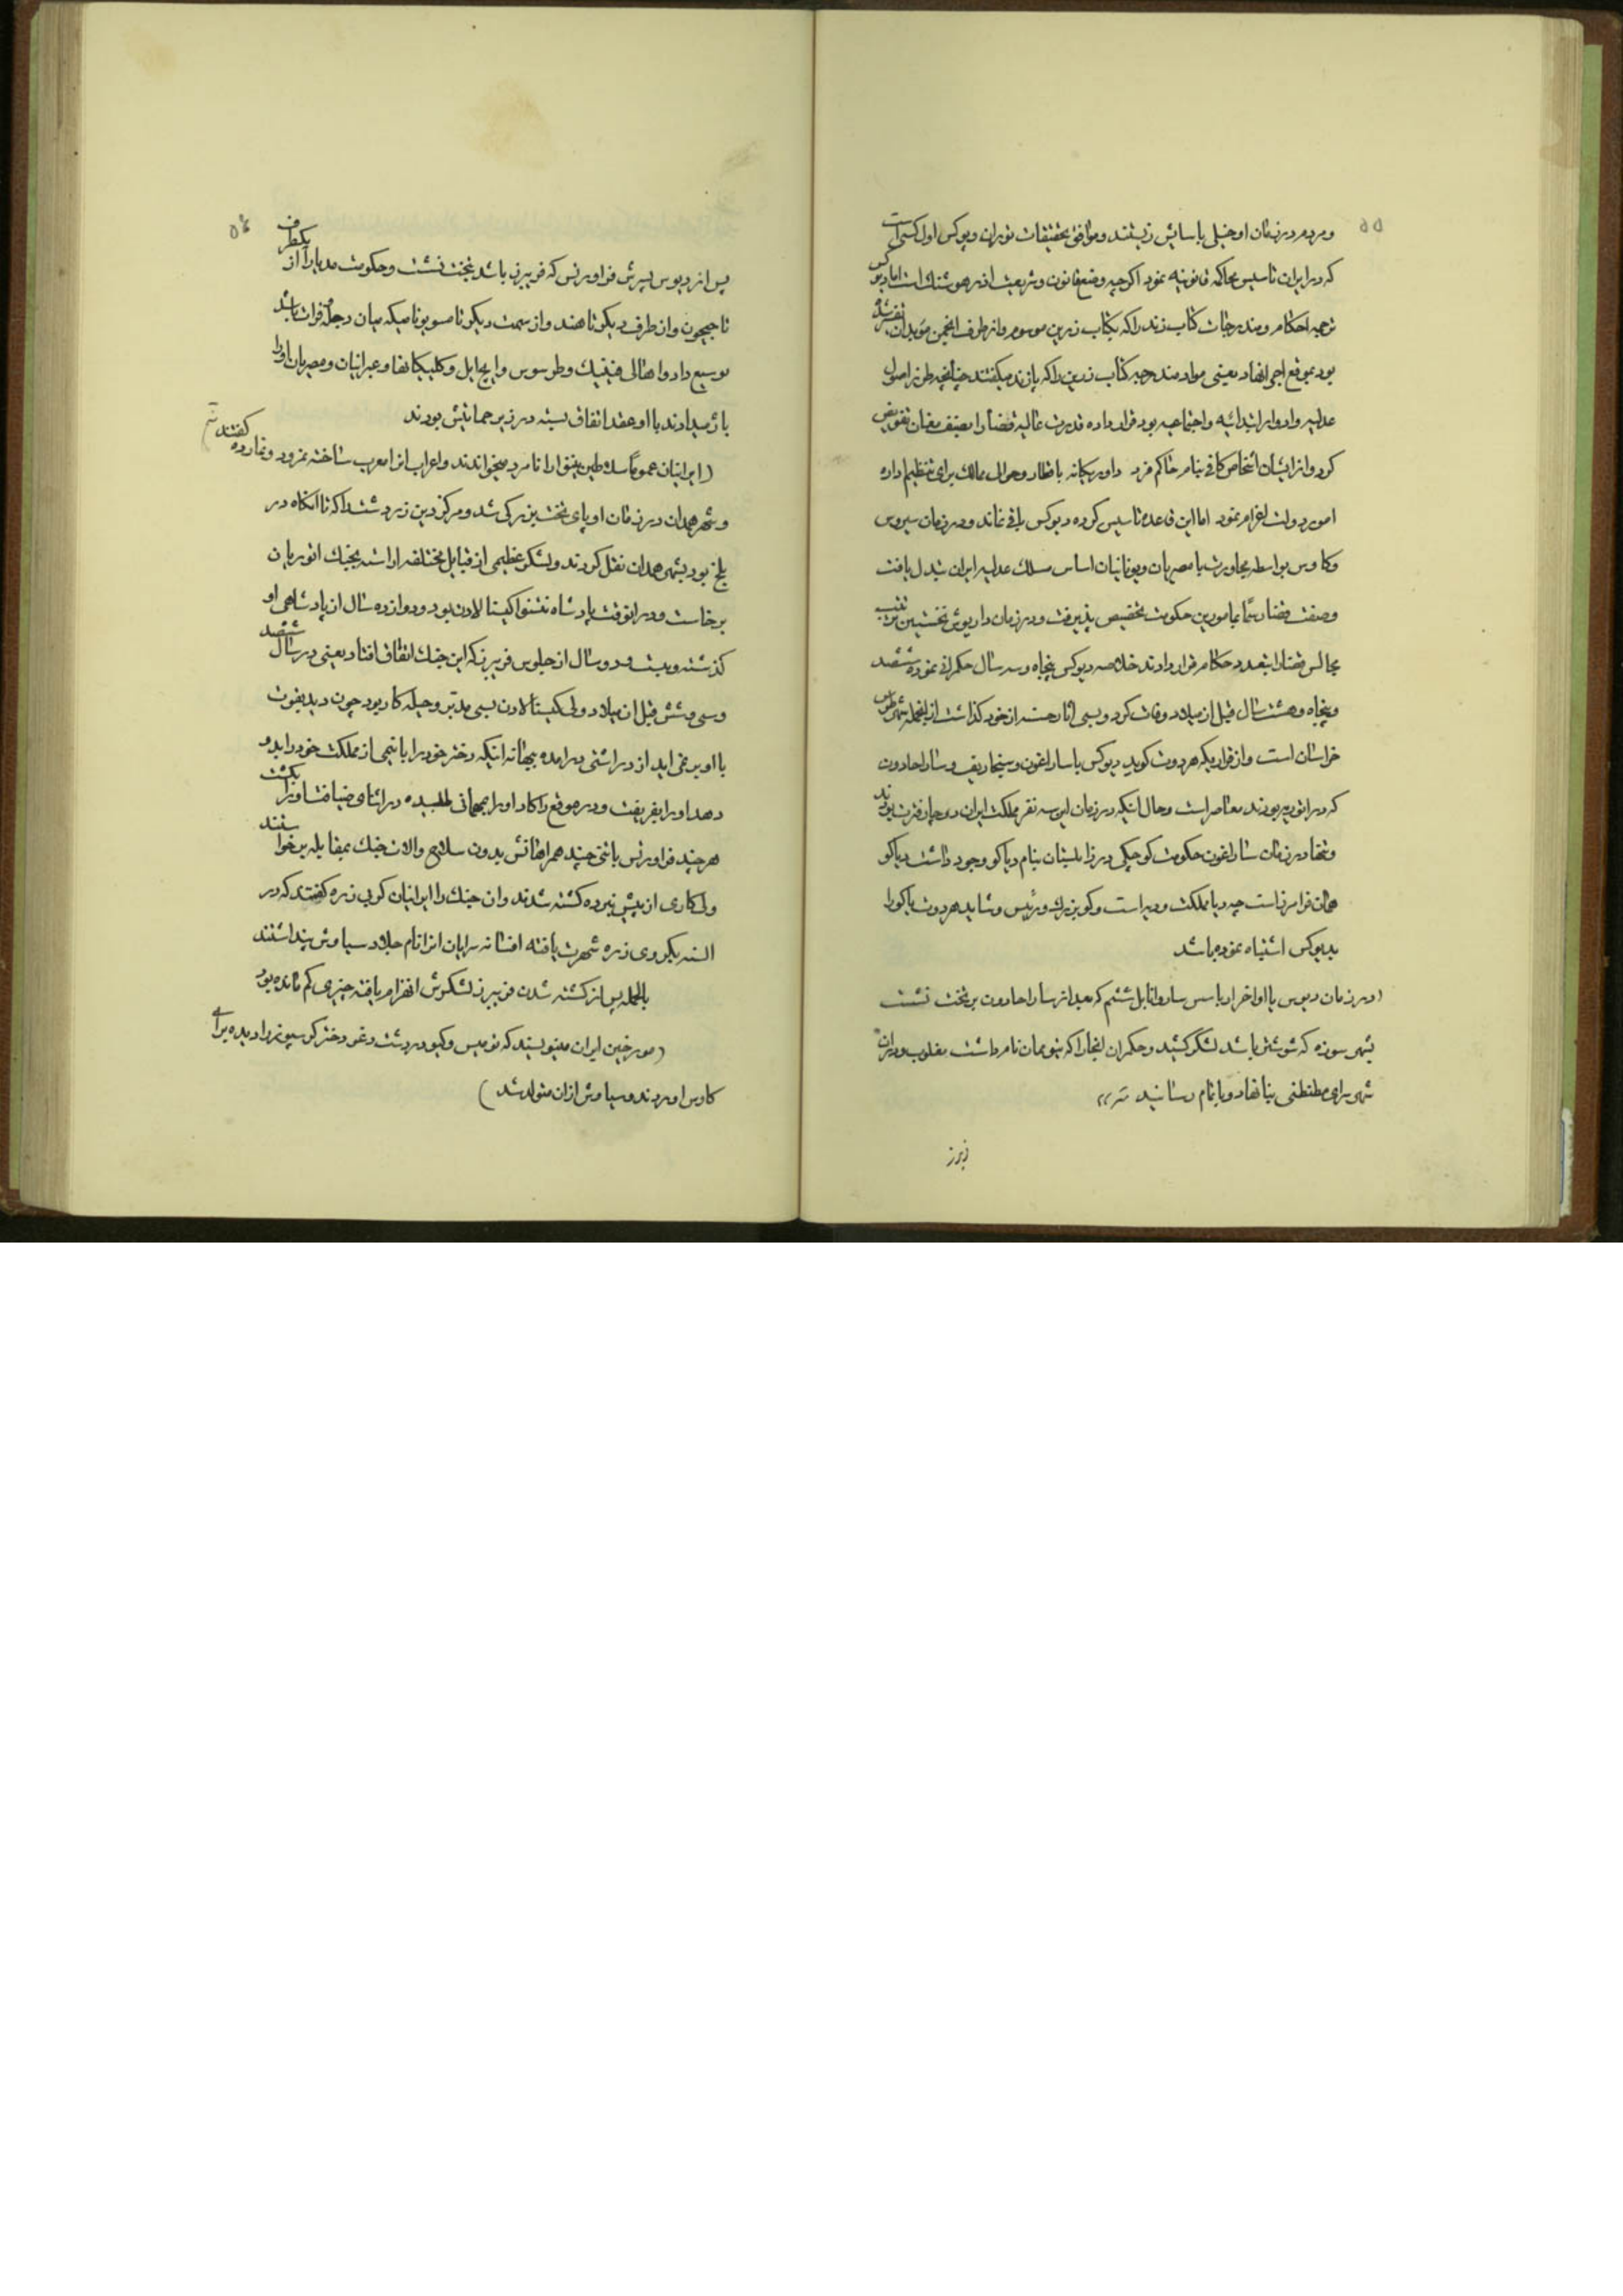 ۵۵
و مردم در زمان او خیلی باسایش زیستند و موافق تحقیقات نوران دیوکس اول کسی است
که در ایران تاسیس محاکمه قانونیه نمود اکرچه وضع قانون و شریعت از هوشنك است اما دیوکس
ترجمه احکام و مندرجات کتاب زند را که بکتاب زرین موسوم و از طرف انجمن موبدان
بود بموقع اجرا نهاد یعنی مواد مندرجه کتاب زرین را که پازند میکفتند چنانچه طرز اصول
عدلیه و ادوار ابتدائیه و اجتماعیه بود قرار داده قدرت عالیه قضا را بصنف مغان تفویض
کرد و از ایشان اشخاص کافی بنام حاکم فرد داور یکانه باقطار و حوالی ممالك برای تنظیم اداره
امور دولت اعزام نمود اما این قاعده تاسیس کرده دیوکس باقی نماند و در زمان سیروس
و کاوس بواسطه مجاورت با مصریان و یونانیان اساس مسلك عدلیه ایران تبدل یافت
و صفت قضا رسما بمامورین حکومت تخصیص پذیرفت و در زمان داریوش نخستین
مجالس قضا را بتعدد حکام قرار دادند خلاصه دیوکس پنجاه و سه سال حکمرانی نموده ششصد
و پنجاه و هشت سال قبل از میلاد وفات کرد و بسی اثار حسنه از خود کذاشت از انجمله شهر طوس
خراسان است و از قراریکه هردوت کوید دیوکس با ساراغون و سنحاریف و ساراحادون
که در اثوریه بودند معاصر است و حال انکه در زمان این سه نفر مملکت ایران دچار فترت بودند
و تنها در زمان ساراغون حکومت کوچکی در زابلستان بنام دیاکو وجود داشت دیاکو
همان فرامرز است چه دیا مملکت و دیه است و کو بزرك و رئیس و شاید هردوت دیاکو را
بدیوکس اشتباه نموده باشد
(در زمان دیوس یا اواخر ارباسس ساردانابل ششم که بعد از ساراحادون بر تخت نشست
بشهر سوزه که شوشتر باشد لشکر کشید و حکمران انجا را که بنومان نام داشت مغلوب و در ان
شهر سرای مطنطنی بنا نهاد و باتمام رسانید
۵۶
پس از دیوس پسرش فراورتس که فریبرز باشد بتخت نشست و حکومت مدیا را از یکطرف
تا جیحون و از طرف دیکر تا هند و از سمت دیکر تا مسوپوتامیکه میان دجله و فرات باشد
توسیع داد و اهالی فنیقیك و طرسوس و اهل بابل و کلیکیا نها و عبرانیان و مصریان او را
باژ میدادند با او عقد اتفاق بسته در زیر حمایتش بودند
(ایرانیان عموما سلاطین نینوا را نامرد میخواندند و اعراب انرا معرب ساخته نمرود و نمارده کفتند
و شهر همدان در زمان او پای تخت بزرکی شد و مرکز دین زردشت را که تا انکاه در
بلخ بود بشهر همدان نقل کردند و لشکر عظیمی از قبایل مختلفه اراسته بجنك اثوریان
برخاست و در انوقت پادشاه نینوا کینالادن بود و دوازده سال از پادشاهی او
کذشته و بیست و دو سال از جلوس فریبرز که این جنك اتفاق افتاد یعنی در سال ششصد
و سی و شش قبل از میلاد ولی کینالادن بسی مدبر و حیله کار بود چون دید بقوت
با او بر نمی اید از در اشتی درامده ببهانه اینکه دختر خود را با نیمی از مملکت خود را بدو
دهد او را بفریفت و در موقع راکا و او را بمهمانی طلبیده در اثنای ضیافت او را بکشت
هر چند فراورتس با تنی چند همراهانش بدون سلاح و الات جنك بمقابله برخواستند
ولی کاری از پیش نبرده کشته شدند و ان جنك را ایرانیان کروی زره کفتند که در
السنه بکروی زره شهرت یافته افسانه سرایان انرا نام جلاد سیاوش پنداشتند
بالجمله پس از کشته شدن فریبرز لشکرش انهزام یافته چیزی کم مانده بود
(مورخین ایران مینویسند که توس و کیو در دشت دغو دختر کرسیوز را دیده برای
کاوس اوردند و سیاوش از ان متولد شد)